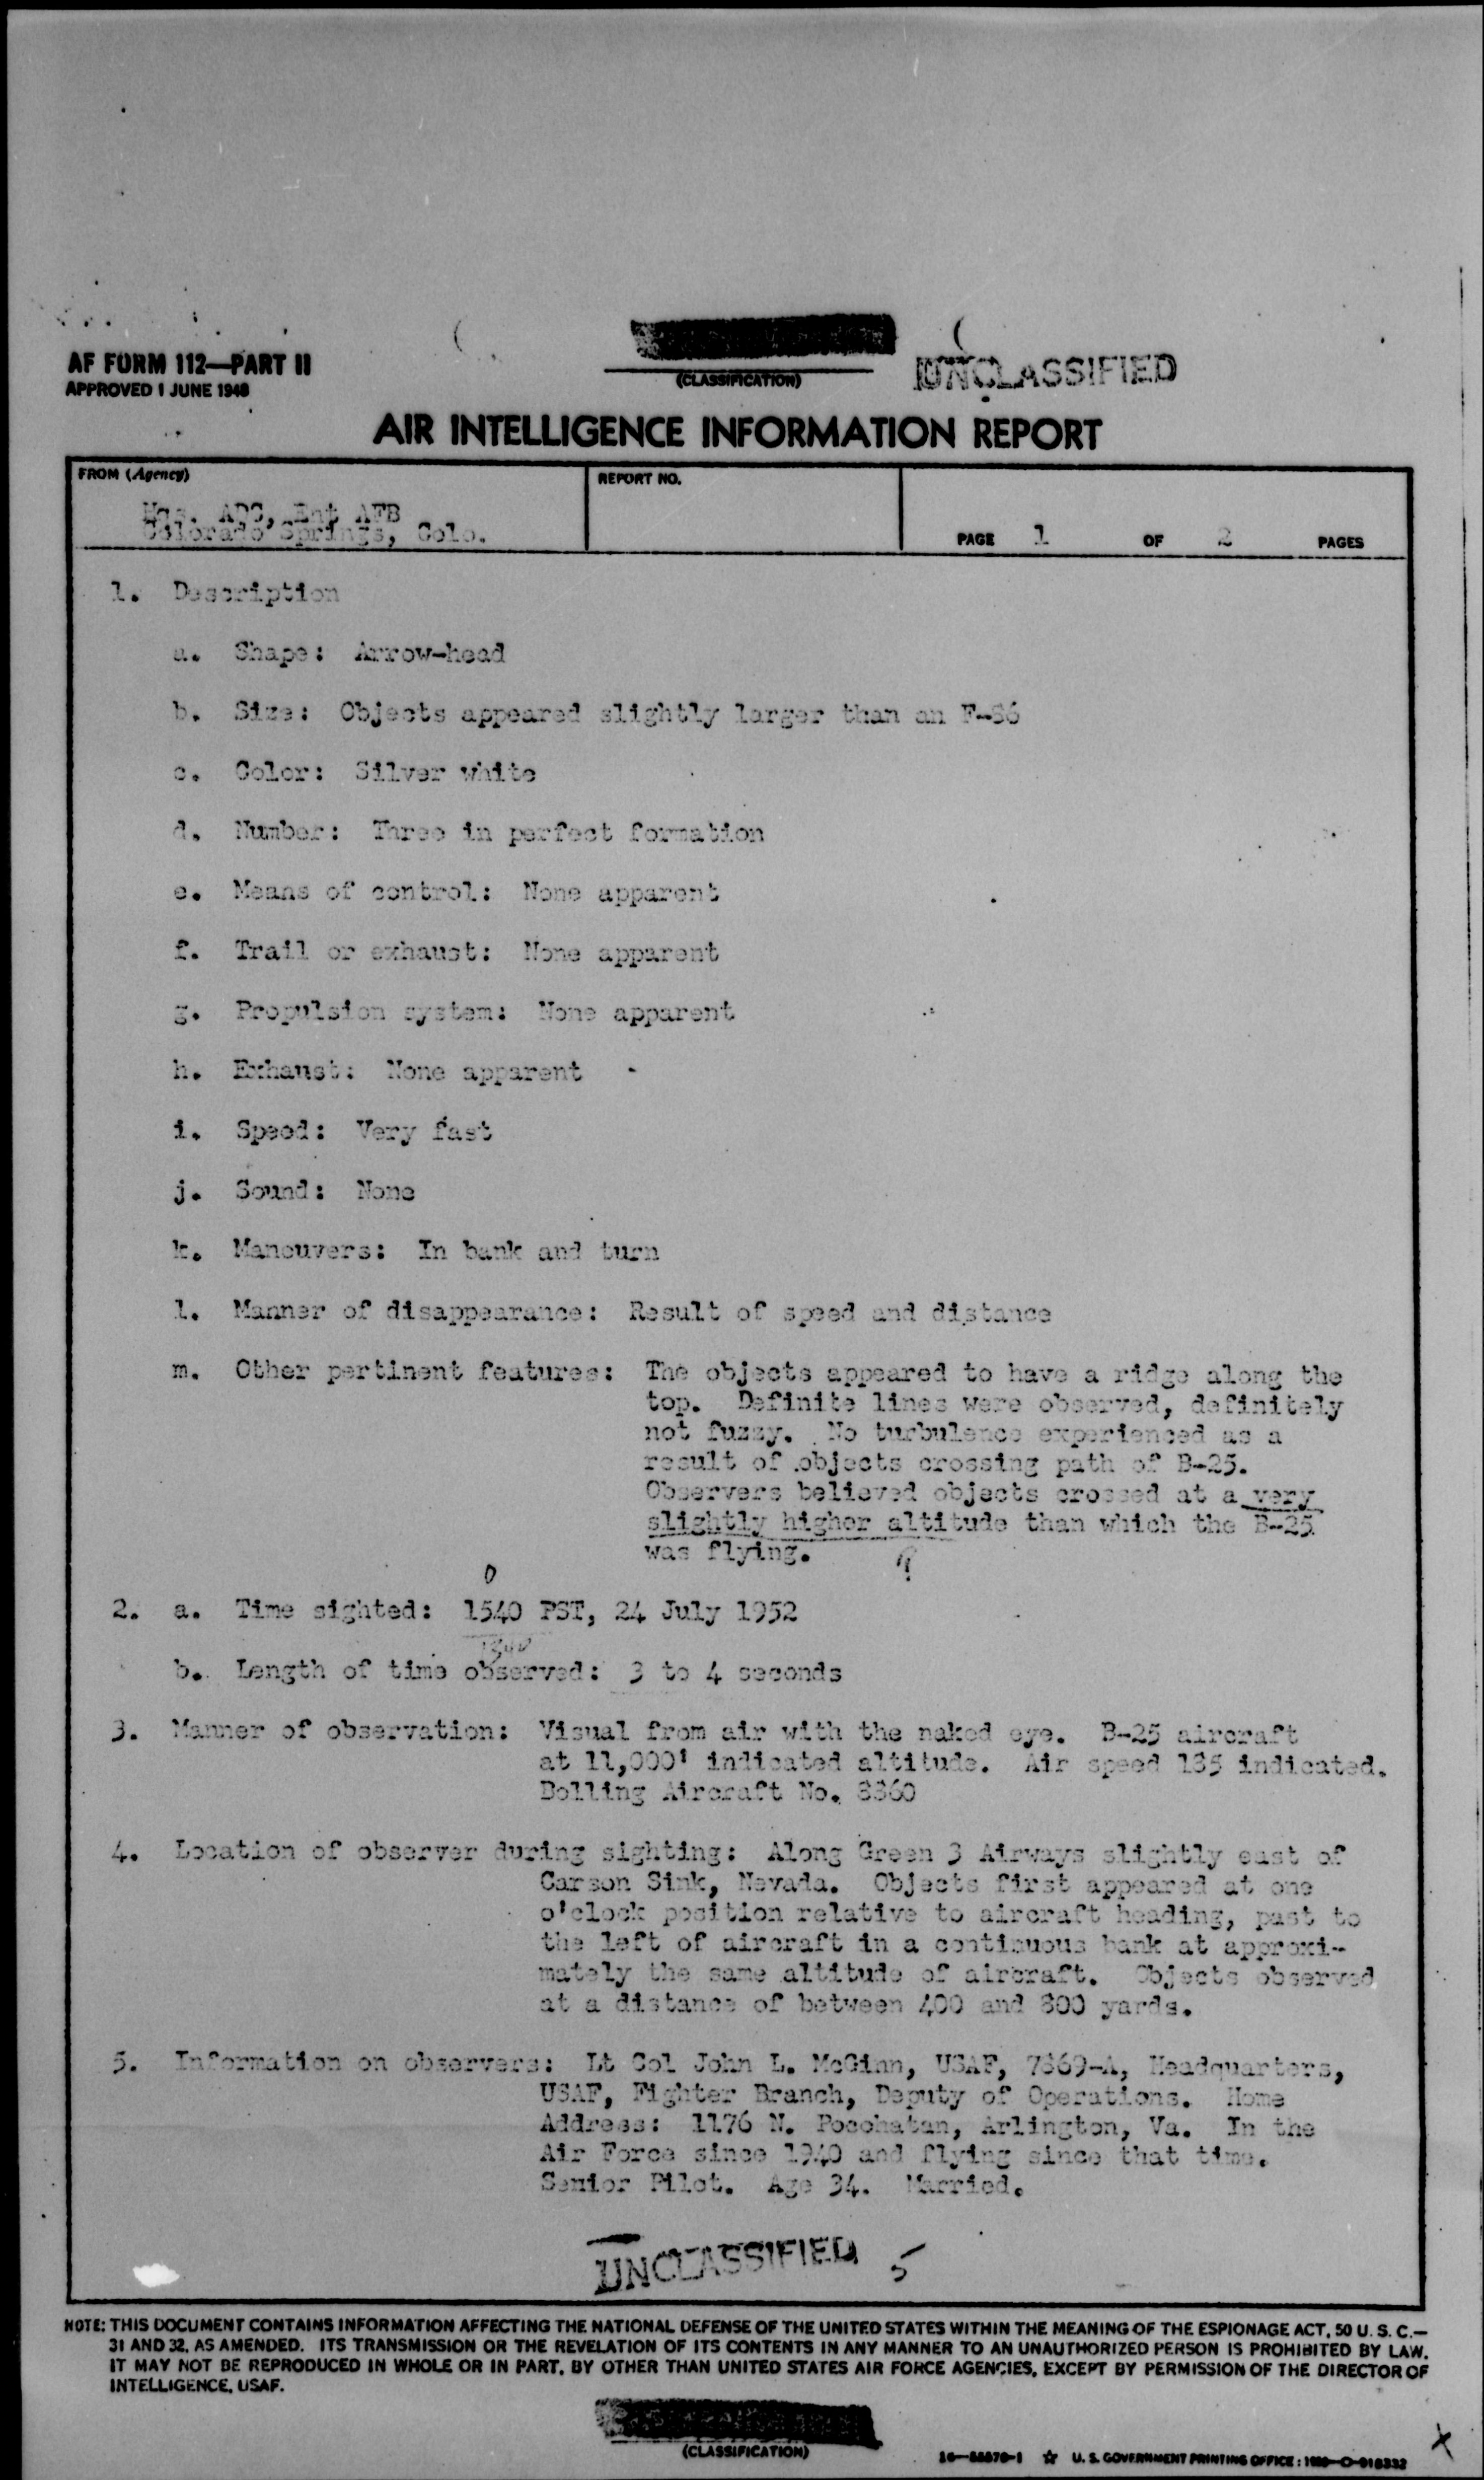 AF FORM 112—PART II
APPROVED 1 JUNE 1948
(CLASSIFICATION)
UNCLASSIFIED
AIR INTELLIGENCE INFORMATION REPORT
FROM (Agency)
REPORT NO.
Hqs. ADC, Ent AFB
Colorado Springs, Colo.
PAGE 1 OF 2 PAGES
1. Description
a. Shape: Arrow-head
b. Size: Objects appeared slightly larger than an F-86
c. Color: Silver white
d. Number: Three in perfect formation
e. Means of control: None apparent
f. Trail or exhaust: None apparent
g. Propulsion system: None apparent
h. Exhaust: None apparent
i. Speed: Very fast
j. Sound: None
k. Maneuvers: In bank and turn
l. Manner of disappearance: Result of speed and distance
m. Other pertinent features: The objects appeared to have a ridge along the
top. Definite lines were observed, definitely
not fuzzy. No turbulence experienced as a
result of objects crossing path of B-25.
Observers believed objects crossed at a very
slightly higher altitude than which the B-25
was flying.
0
2. a. Time sighted: 1540 PST, 24 July 1952
b. Length of time observed: 3 to 4 seconds
3. Manner of observation: Visual from air with the naked eye. B-25 aircraft
at 11,000' indicated altitude. Air speed 185 indicated.
Bolling Aircraft No. 8860
4. Location of observer during sighting: Along Green 3 Airways slightly east of
Carson Sink, Nevada. Objects first appeared at one
o'clock position relative to aircraft heading, past to
the left of aircraft in a continuous bank at approxi-
mately the same altitude of aircraft. Objects observed
at a distance of between 400 and 800 yards.
5. Information on observers: Lt Col John L. McGinn, USAF, 7869-A, Headquarters,
USAF, Fighter Branch, Deputy of Operations. Home
Address: 1176 N. Pocohatan, Arlington, Va. In the
Air Force since 1940 and flying since that time.
Senior Pilot. Age 34. Married.
UNCLASSIFIED 5
NOTE: THIS DOCUMENT CONTAINS INFORMATION AFFECTING THE NATIONAL DEFENSE OF THE UNITED STATES WITHIN THE MEANING OF THE ESPIONAGE ACT, 50 U. S. C.—
31 AND 32, AS AMENDED. ITS TRANSMISSION OR THE REVELATION OF ITS CONTENTS IN ANY MANNER TO AN UNAUTHORIZED PERSON IS PROHIBITED BY LAW.
IT MAY NOT BE REPRODUCED IN WHOLE OR IN PART, BY OTHER THAN UNITED STATES AIR FORCE AGENCIES, EXCEPT BY PERMISSION OF THE DIRECTOR OF
INTELLIGENCE, USAF.
(CLASSIFICATION)
☆ U. S. GOVERNMENT PRINTING OFFICE:
X